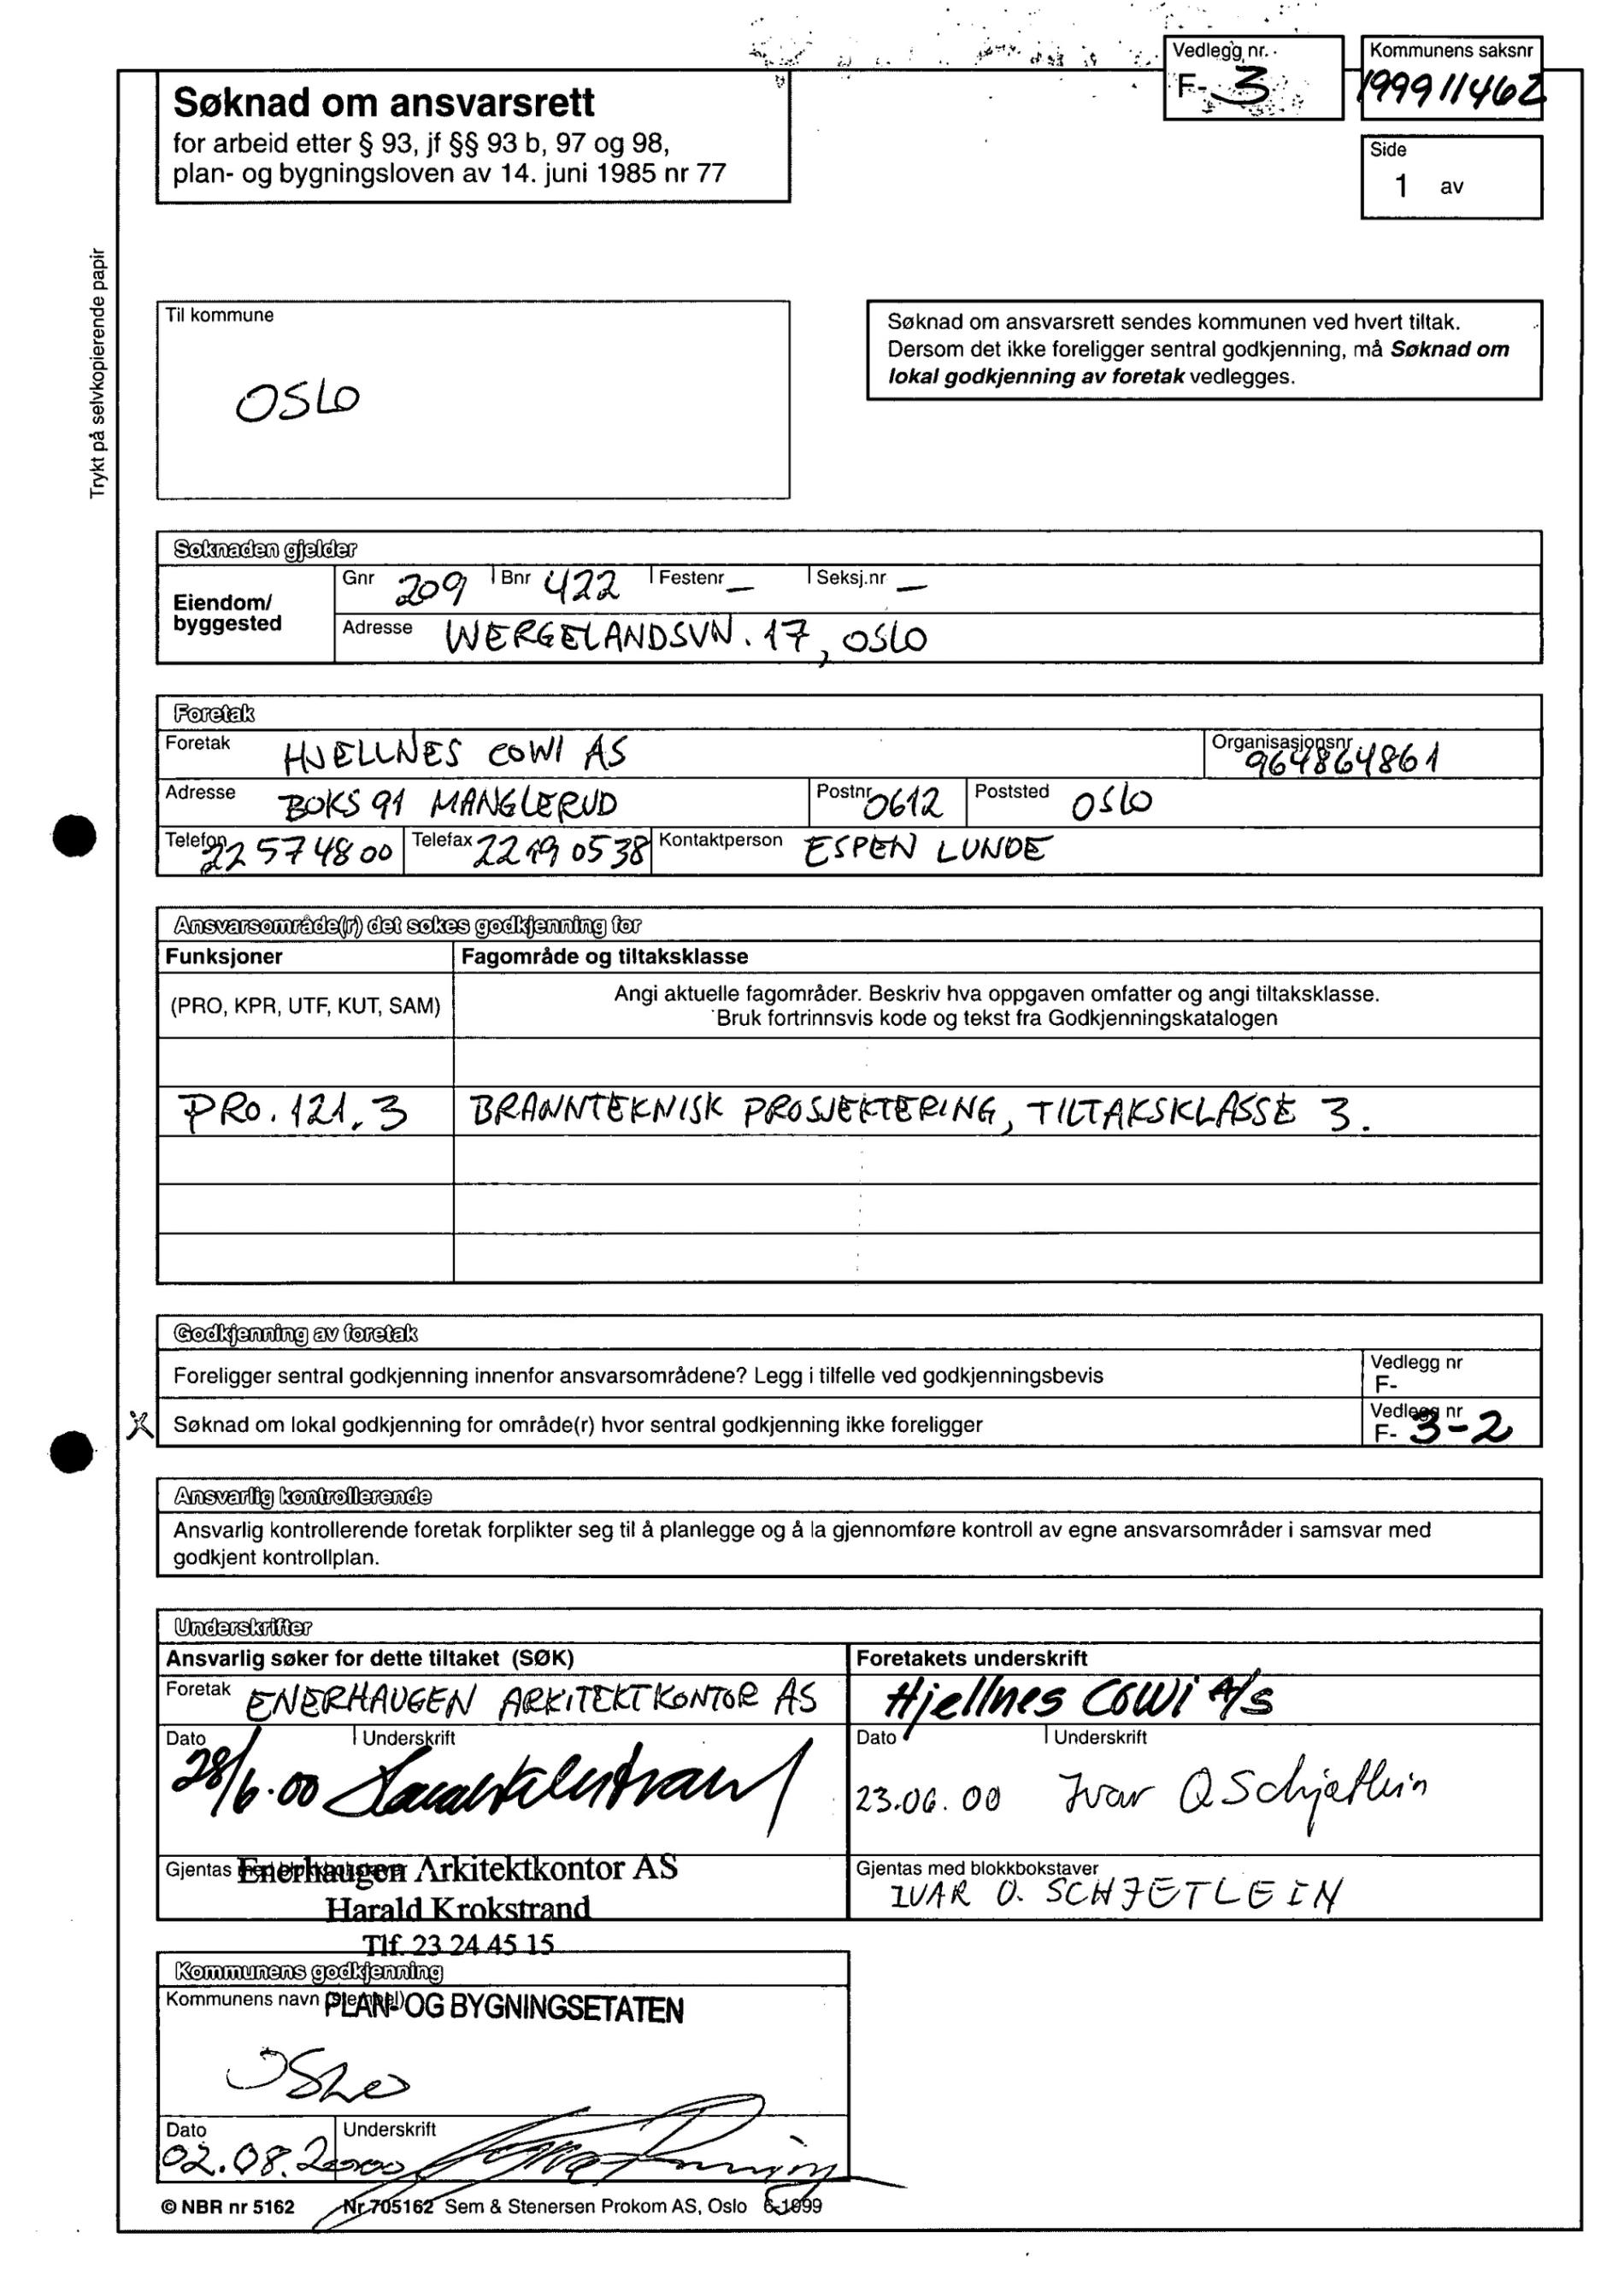 Vedlegg nr.
F- 3
Kommunens saksnr
199911462
Søknad om ansvarsrett
for arbeid etter § 93, jf §§ 93 b, 97 og 98,
plan- og bygningsloven av 14. juni 1985 nr 77
Side
1 av
Trykt på selvkopierende papir
Til kommune
OSLO
Søknad om ansvarsrett sendes kommunen ved hvert tiltak.
Dersom det ikke foreligger sentral godkjenning, må Søknad om
lokal godkjenning av foretak vedlegges.
Søknaden gjelder
Eiendom/
byggested
Gnr 209 Bnr 422 Festenr – Seksj.nr –
Adresse WERGELANDSVN. 17, OSLO
Foretak
Foretak HJELLNES COWI AS Organisasjonsnr 964864861
Adresse BOKS 91 MANGLERUD Postnr 0612 Poststed OSLO
Telefon 22 57 48 00 Telefax 22 19 05 38 Kontaktperson ESPEN LUNDE
Ansvarsområde(r) det søkes godkjenning for
Funksjoner Fagområde og tiltaksklasse
(PRO, KPR, UTF, KUT, SAM) Angi aktuelle fagområder. Beskriv hva oppgaven omfatter og angi tiltaksklasse.
Bruk fortrinnsvis kode og tekst fra Godkjenningskatalogen
PRO. 121. 3 BRANNTEKNISK PROSJEKTERING, TILTAKSKLASSE 3.
Godkjenning av foretak
Foreligger sentral godkjenning innenfor ansvarsområdene? Legg i tilfelle ved godkjenningsbevis Vedlegg nr
F-
X Søknad om lokal godkjenning for område(r) hvor sentral godkjenning ikke foreligger Vedlegg nr
F- 3-2
Ansvarlig kontrollerende
Ansvarlig kontrollerende foretak forplikter seg til å planlegge og å la gjennomføre kontroll av egne ansvarsområder i samsvar med
godkjent kontrollplan.
Underskrifter
Ansvarlig søker for dette tiltaket (SØK) Foretakets underskrift
Foretak ENERHAUGEN ARKITEKTKONTOR AS Hjellnes COWI A/S
Dato Underskrift Dato Underskrift
28/6.00 23.06.00 Ivar O Schjetlein
Gjentas med blokkbokstaver Enerhaugen Arkitektkontor AS
Harald Krokstrand
Tlf. 23 24 45 15
Gjentas med blokkbokstaver
IVAR O. SCHJETLEIN
Kommunens godkjenning
Kommunens navn (stempel) PLAN- OG BYGNINGSETATEN
Oslo
Dato Underskrift
02.08.2000
© NBR nr 5162 Nr 705162 Sem & Stenersen Prokom AS, Oslo 6-1999